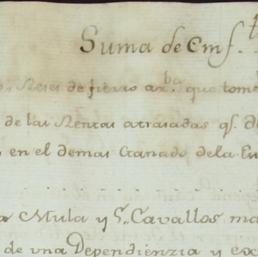 Suma de Cmf.t
Reses de fierro ar.ba que tom
de las Rentas atrasadas q.s d
en el demas Ganado de la Eu
a Mula y S.s Cavallos ma
de vna Dependienzia y ex